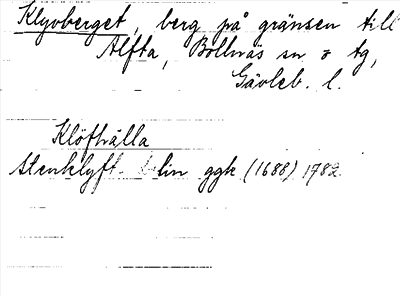 Klyvberget, berg på gränsen till
Alfta, Bollnäs sn o tg,
Gävleb. l.
Klöfhälla
Stenklyft. lin ggk (1688) 1782.